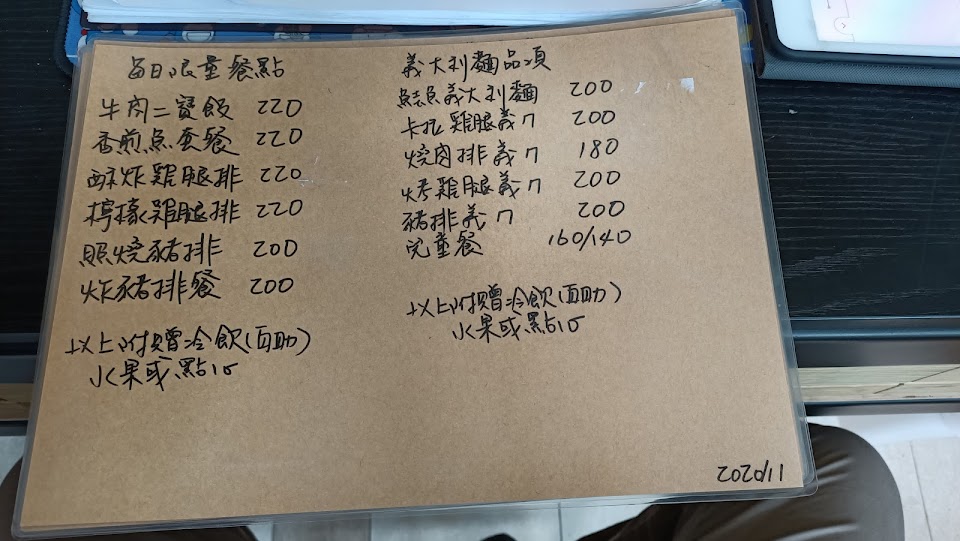 每日限量餐點
牛肉二寶飯 220
香煎魚套餐 220
酥炸雞腿排 220
檸檬雞腿排 220
照燒豬排 200
炸豬排餐 200
以上附贈冷飲(自助)
水果或點心
義大利麵品項
鱈魚義大利麵 200
卡拉雞腿義ㄇ 200
燒肉排義ㄇ 180
烤雞腿義ㄇ 200
豬排義ㄇ 200
兒童餐 160/140
以上附贈冷飲(自助)
水果或點心
2020/11